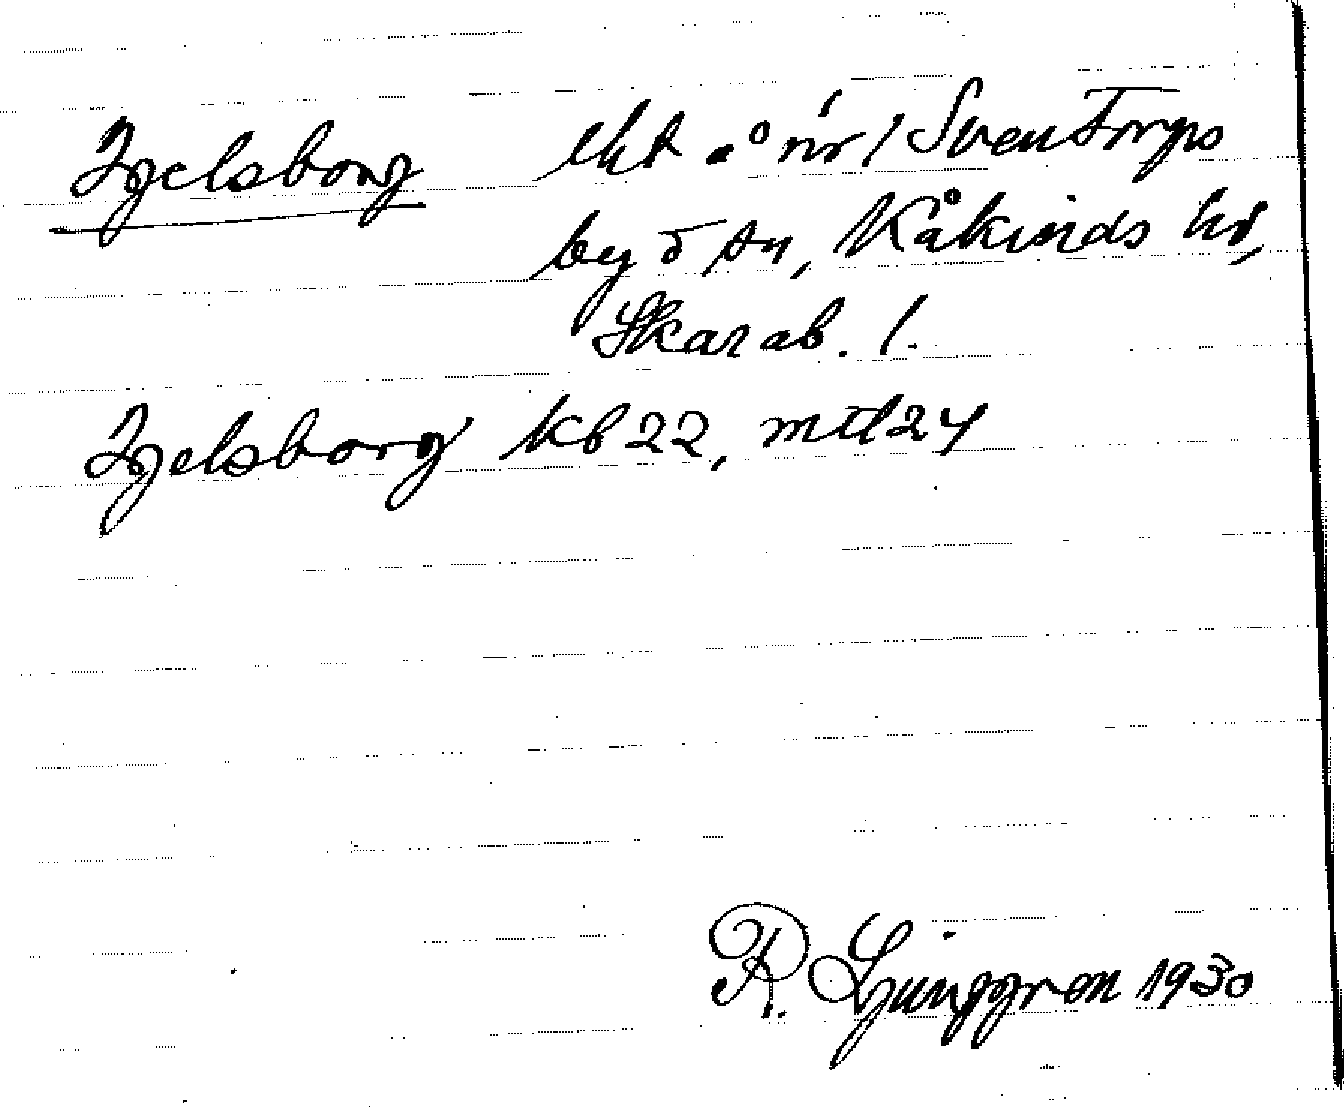 Igelsborg lht å nr 1 Sventorps
by o sn, Kåkinds hd,
Skarab. l.
Igelsborg kb 22, mtl 24
R. Ljunggren 1930